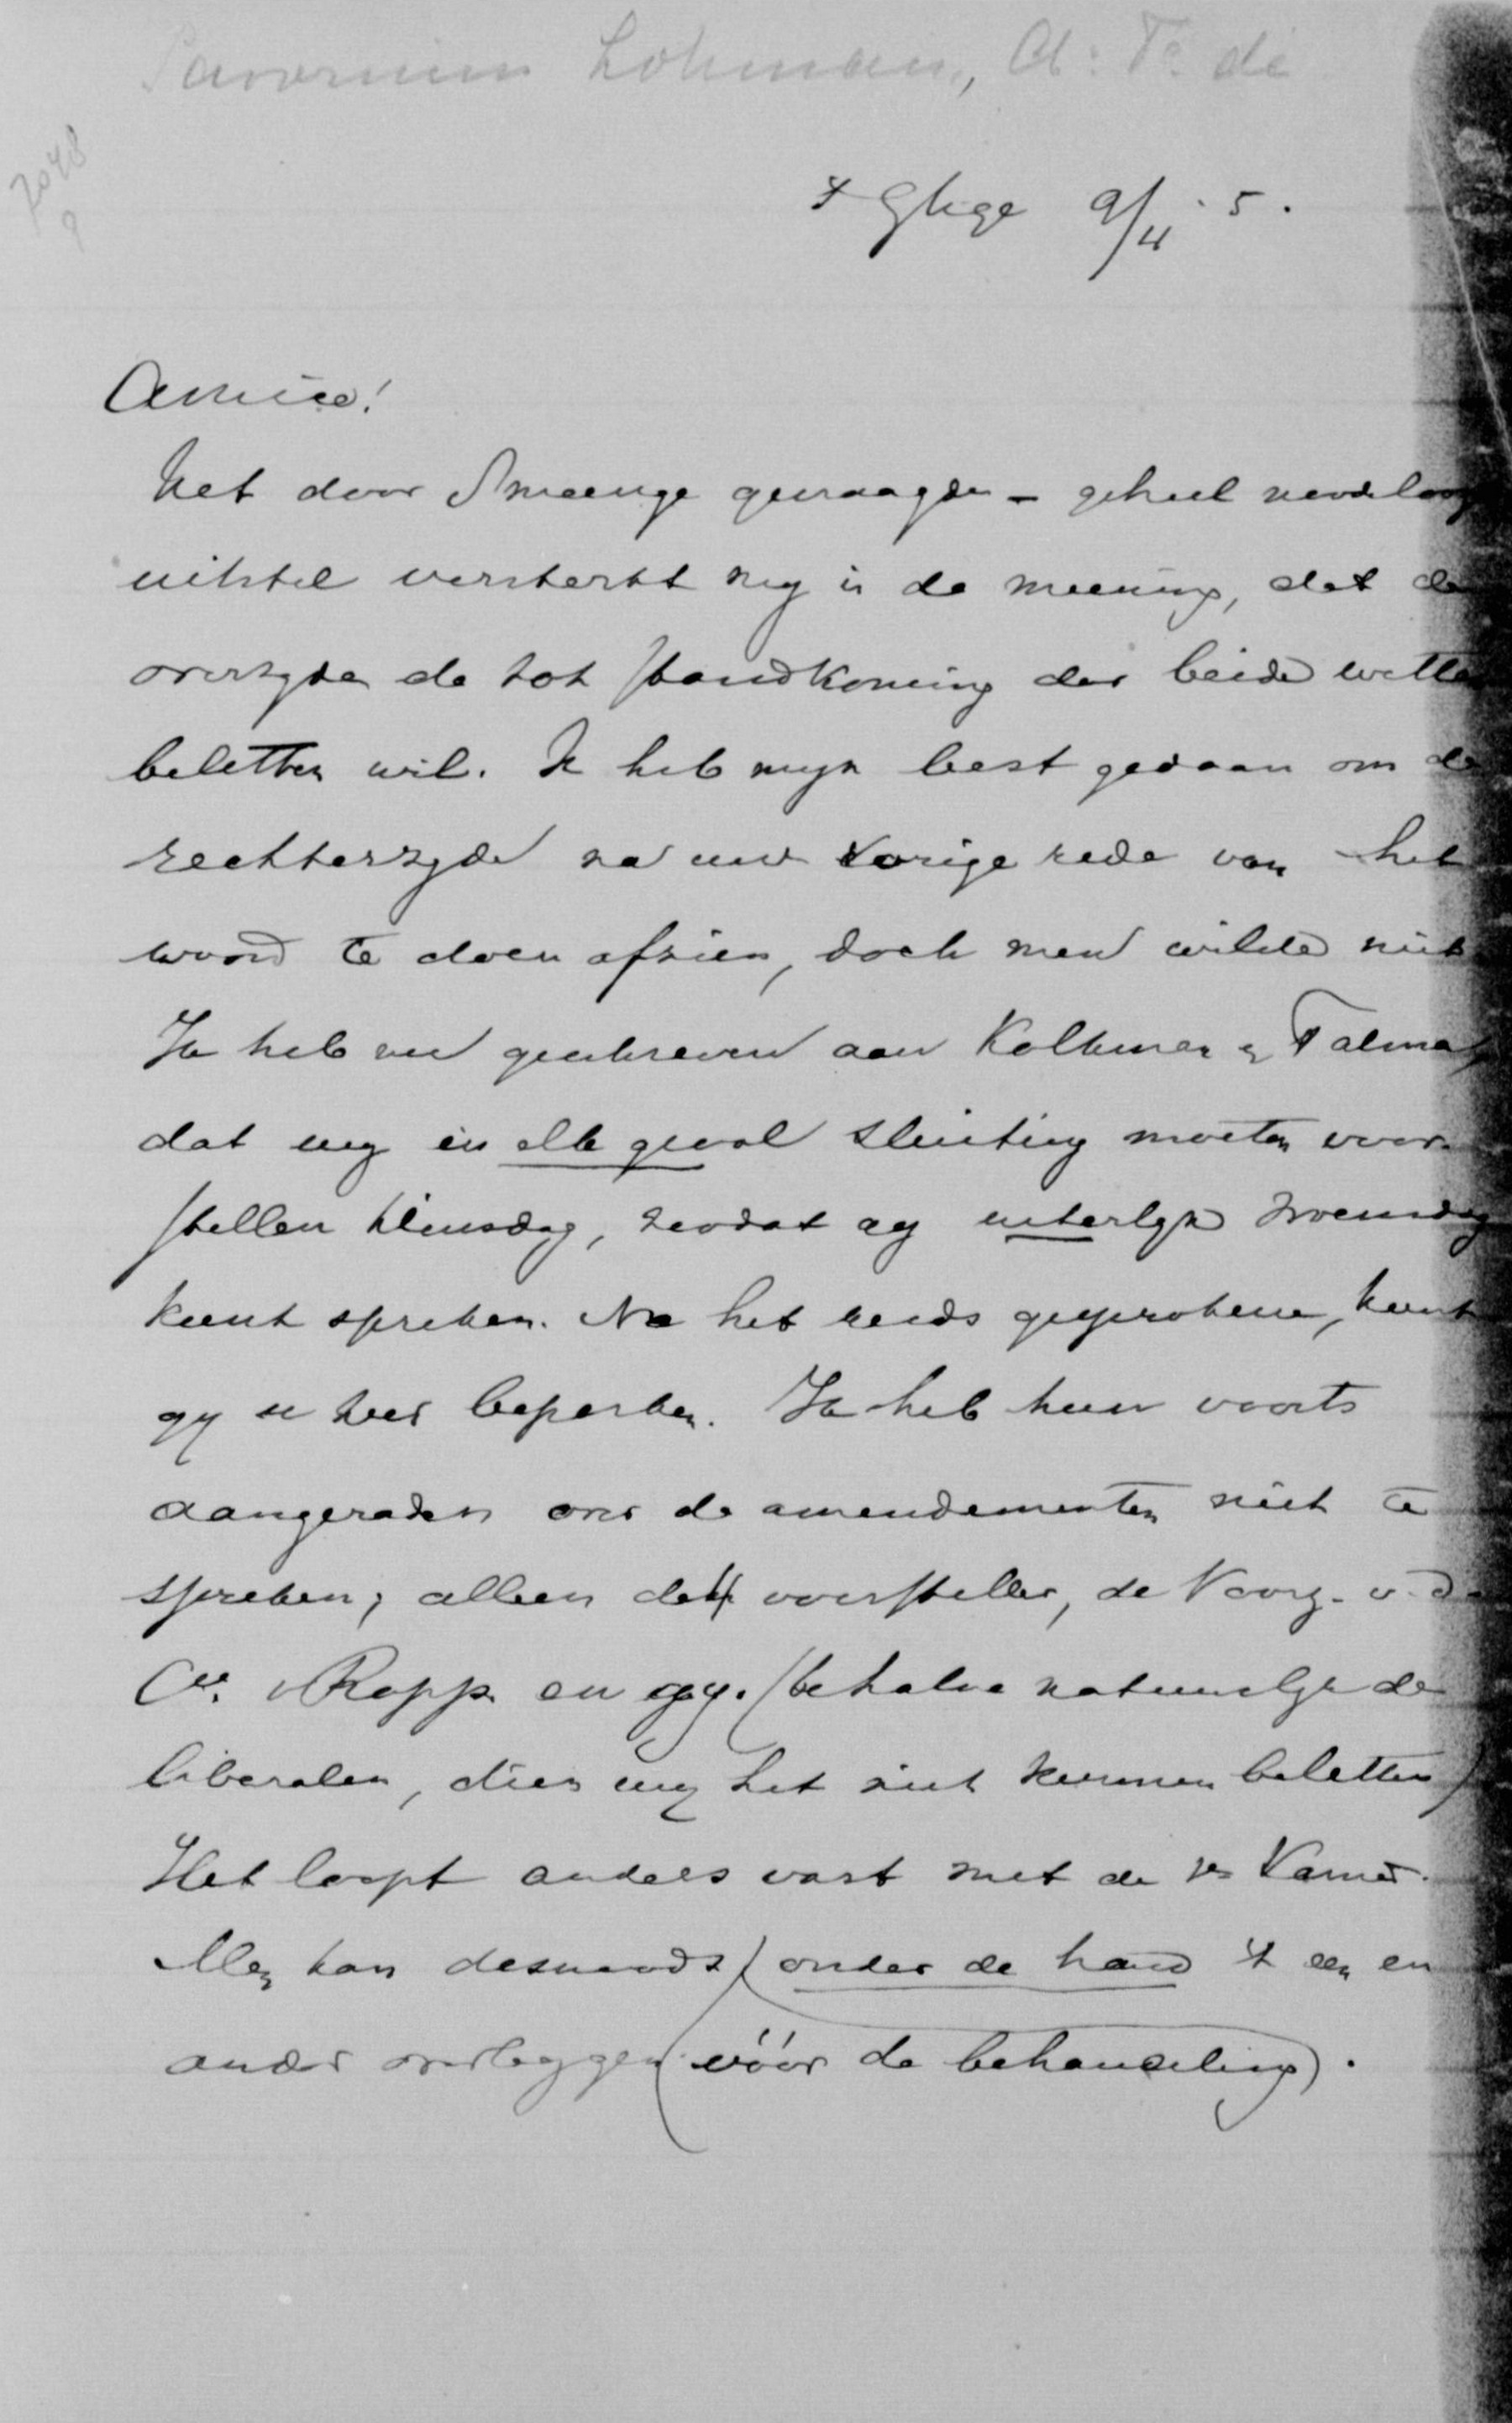 Savornin Lohman, A: F: de
7048
9
's Ghge 9/4 '5.
Amice!
Het door Smeenge gevraagde – geheel noodeloos
uitstel versterkt my in de meening, dat de
overzyde de tot standkoming der beide wetten
beletten wil. Ik heb myn best gedaan om de
rechterzyde na uw vorige rede van het
woord te doen afzien, doch men wilde niet
Ik heb nu geschreven aan Kolkman en Talma,
dat wy in elk geval sluiting moeten voor-
stellen Dinsdag, zoodat gy uiterlyk Woensdag
kunt spreken. Na het reeds gesprokene, kunt
gy u zeer beperken. Ik heb hun voorts
aangeraden over de amendementen niet te
spreken; alleen de voorsteller, de Voorz. v. d.
Cie. v Rapp. en gy. (behalve natuurlyk de
liberalen, dien wy het niet kunnen beletten)
Het loopt anders vast met de 1e Kamer.
Men kan desnoods onder de hand 't een en
ander overleggen (vóór de behandeling).